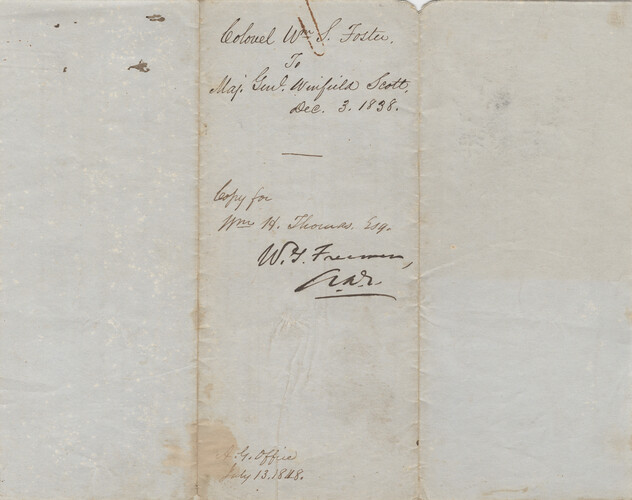 Colonel Wm S. Foster.
To
Maj. Genl. Winfield Scott,
Dec. 3. 1838.
Copy for
Wm H. Thomas. Esq.
W. G. Freeman,
A.G. Office
July 13. 1848.